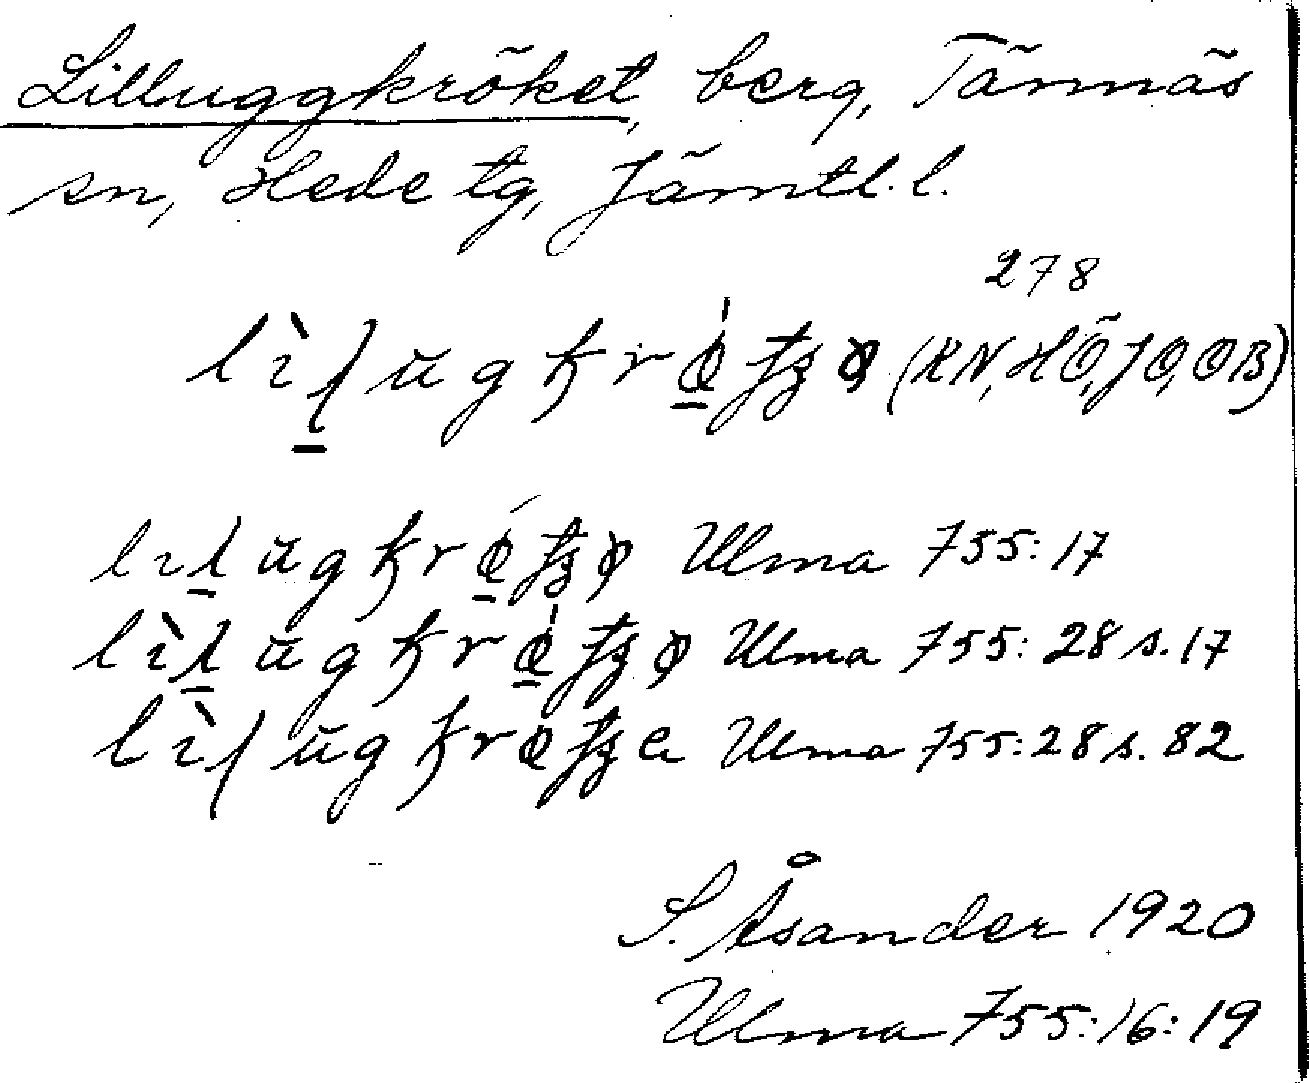 Lilluggkröket, berg, Tännäs
sn, Hede tg, Jämtl. l.
278
(KN, HÖ, JO, OB)
Ulma 755:17
Ulma 755:28 s. 17
Ulma 755:28 s. 82
S. Åsander 1920
Ulma 755:16:19